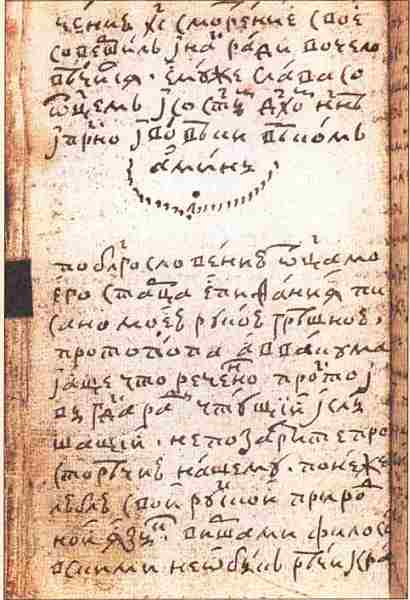 чениѣ хс смотрение свое
совершилъ ꙇ на ради вочело
вѣчися . ему же слава со
ѿцемъ ꙇ со сты дхо ннѣ
ꙇ прно ꙇ во вѣки вѣкомъ
аминь
по блгословению ѿца мо
его старца епифания пи
сано моею рукою грѣшною .
протопопа аввакума
ꙇ аще что реченно просто ꙇ
вы гда ра чтущий ꙇ слы
шащий . не позазрите про
сторѣчию нашему . понеже
люблю свой руской природ
ной язы . виршами филосо
вскими не ѡбыкъ рѣчи кра